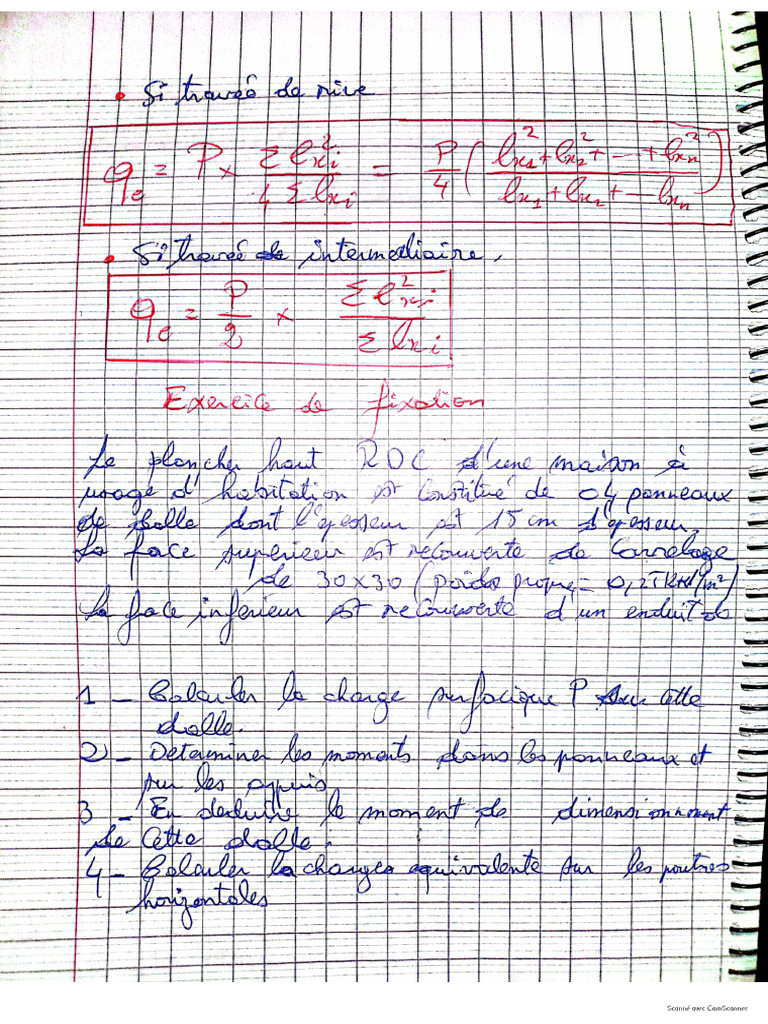 • Si travée de rive
q₀ = P × Σ lxi² / 4 Σ lxi = P/4 ( lx1² + lx2² + --- + lxn² / lx1 + lx2 + --- lxn )
• Si travée de intermediaire.
q₀ = P/2 × Σ l²xi / Σ lxi
Exercice de fixation
Le plancher haut RDC d'une maison à
usage d'habitation est constitué de 04 panneaux
de dalle dont l'épesseur est 15 cm d'épesseur.
La face superieur est recouverte de Carrelage
de 30x30 (poids propre = 0,2 /m²)
La face inferieur est recouverte d'un enduit de
1 - Calculer la charge surfacique P sur cette
dalle.
2) - Determiner les moments dans les panneaux et
sur les appuis
3 - En deduire le moment de dimensionnement
de cette dalle.
4 - Calculer la charge equivalente sur les poutres
horizontales
Scanné avec CamScanner